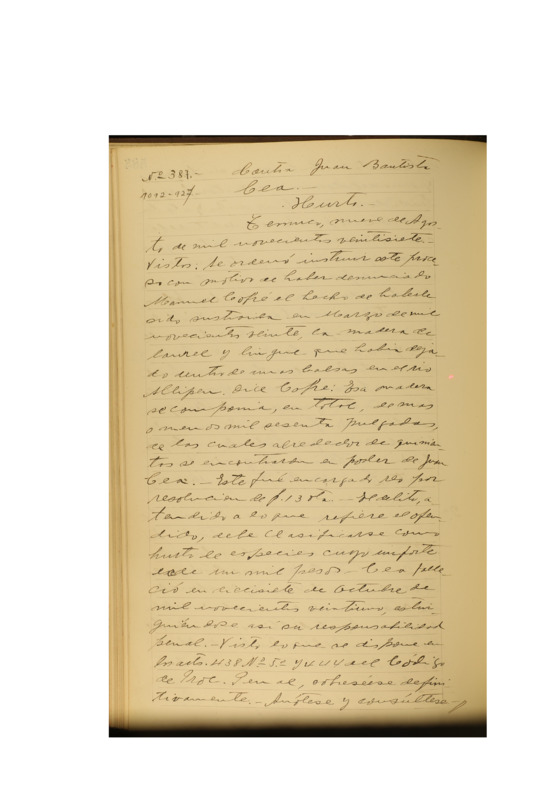 Nº 389.- Contra Juan Bautista
1092-927.- Cea.-
Hurto.-
Temuco, nueve de Agos-
to de mil novecientos veintisiete.-
Vistos. Se ordenó instruir este proce-
so con motivo de haber denunciado
Manuel Cofré el hecho de habérsele
sido sustraida en Marzo de mil
novecientos veinte, la madera de
laurel y lingue que habia deja-
do dentro de unas balsas en el rio
Allipen. Dice Cofré: Esa madera
se componia, en total, de mas
o menos mil sesenta pulgadas,
de las cuales alrededor de quinien-
tos se encontraron en poder de Juan
Cea.- Este fué encargado reo por
resolucion de f. 13 vta.- El delito, a-
tendido a lo que refiere el ofen-
dido, debe clasificarse como
hurto de especies cuyo importe
de un mil pesos.- Cea falle-
ció en diecisiete de Octubre de
mil novecientos veintiuno, estin-
guiéndose asi su responsabilidad
penal.- Visto lo que se dispone en
los arts. 438 Nº 5º y 444 del Código
de Proc. Penal, sobreséese defini-
tivamente.- Anótese y consúltese.-